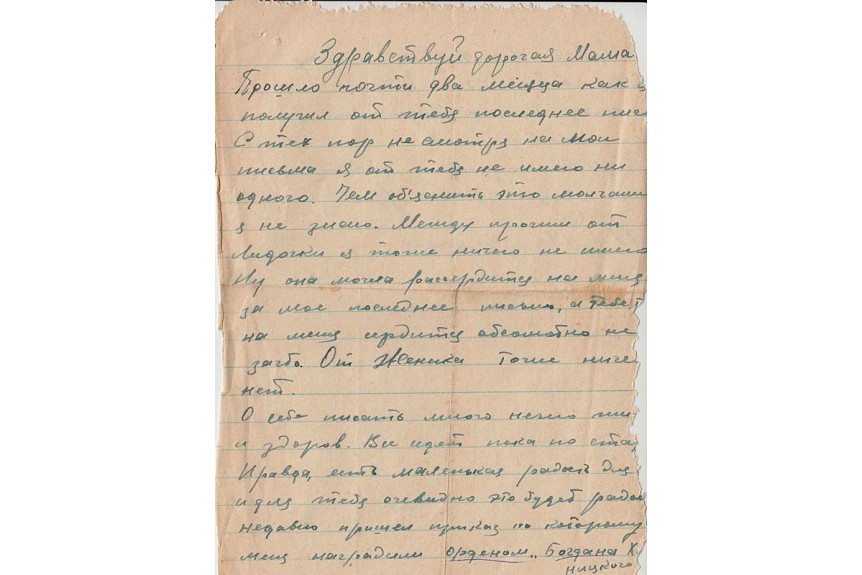 Здравствуй дорогая Мама
Прошло почти два месяца как я
получил от тебя последнее пис
С тех пор не смотря на мои
письма я от тебя не имею ни
одного. Чем об'яснить это молчани
я не знаю. Между прочим от
Лидочки я тоже ничего не имею
Ну она могла рассердится на меня
за мое последнее письмо, а тебе
на меня сердится абсолютно не
зачто. От Женика тоже ниче
нет.
О себе писать много нечего жи
и здоров. Все идет пока по ста
Правда, есть маленькая радость для
и для тебя очевидно это будет радос
недавно пришел приказ по которому
меня наградили орденом „Богдана Х
ницкого